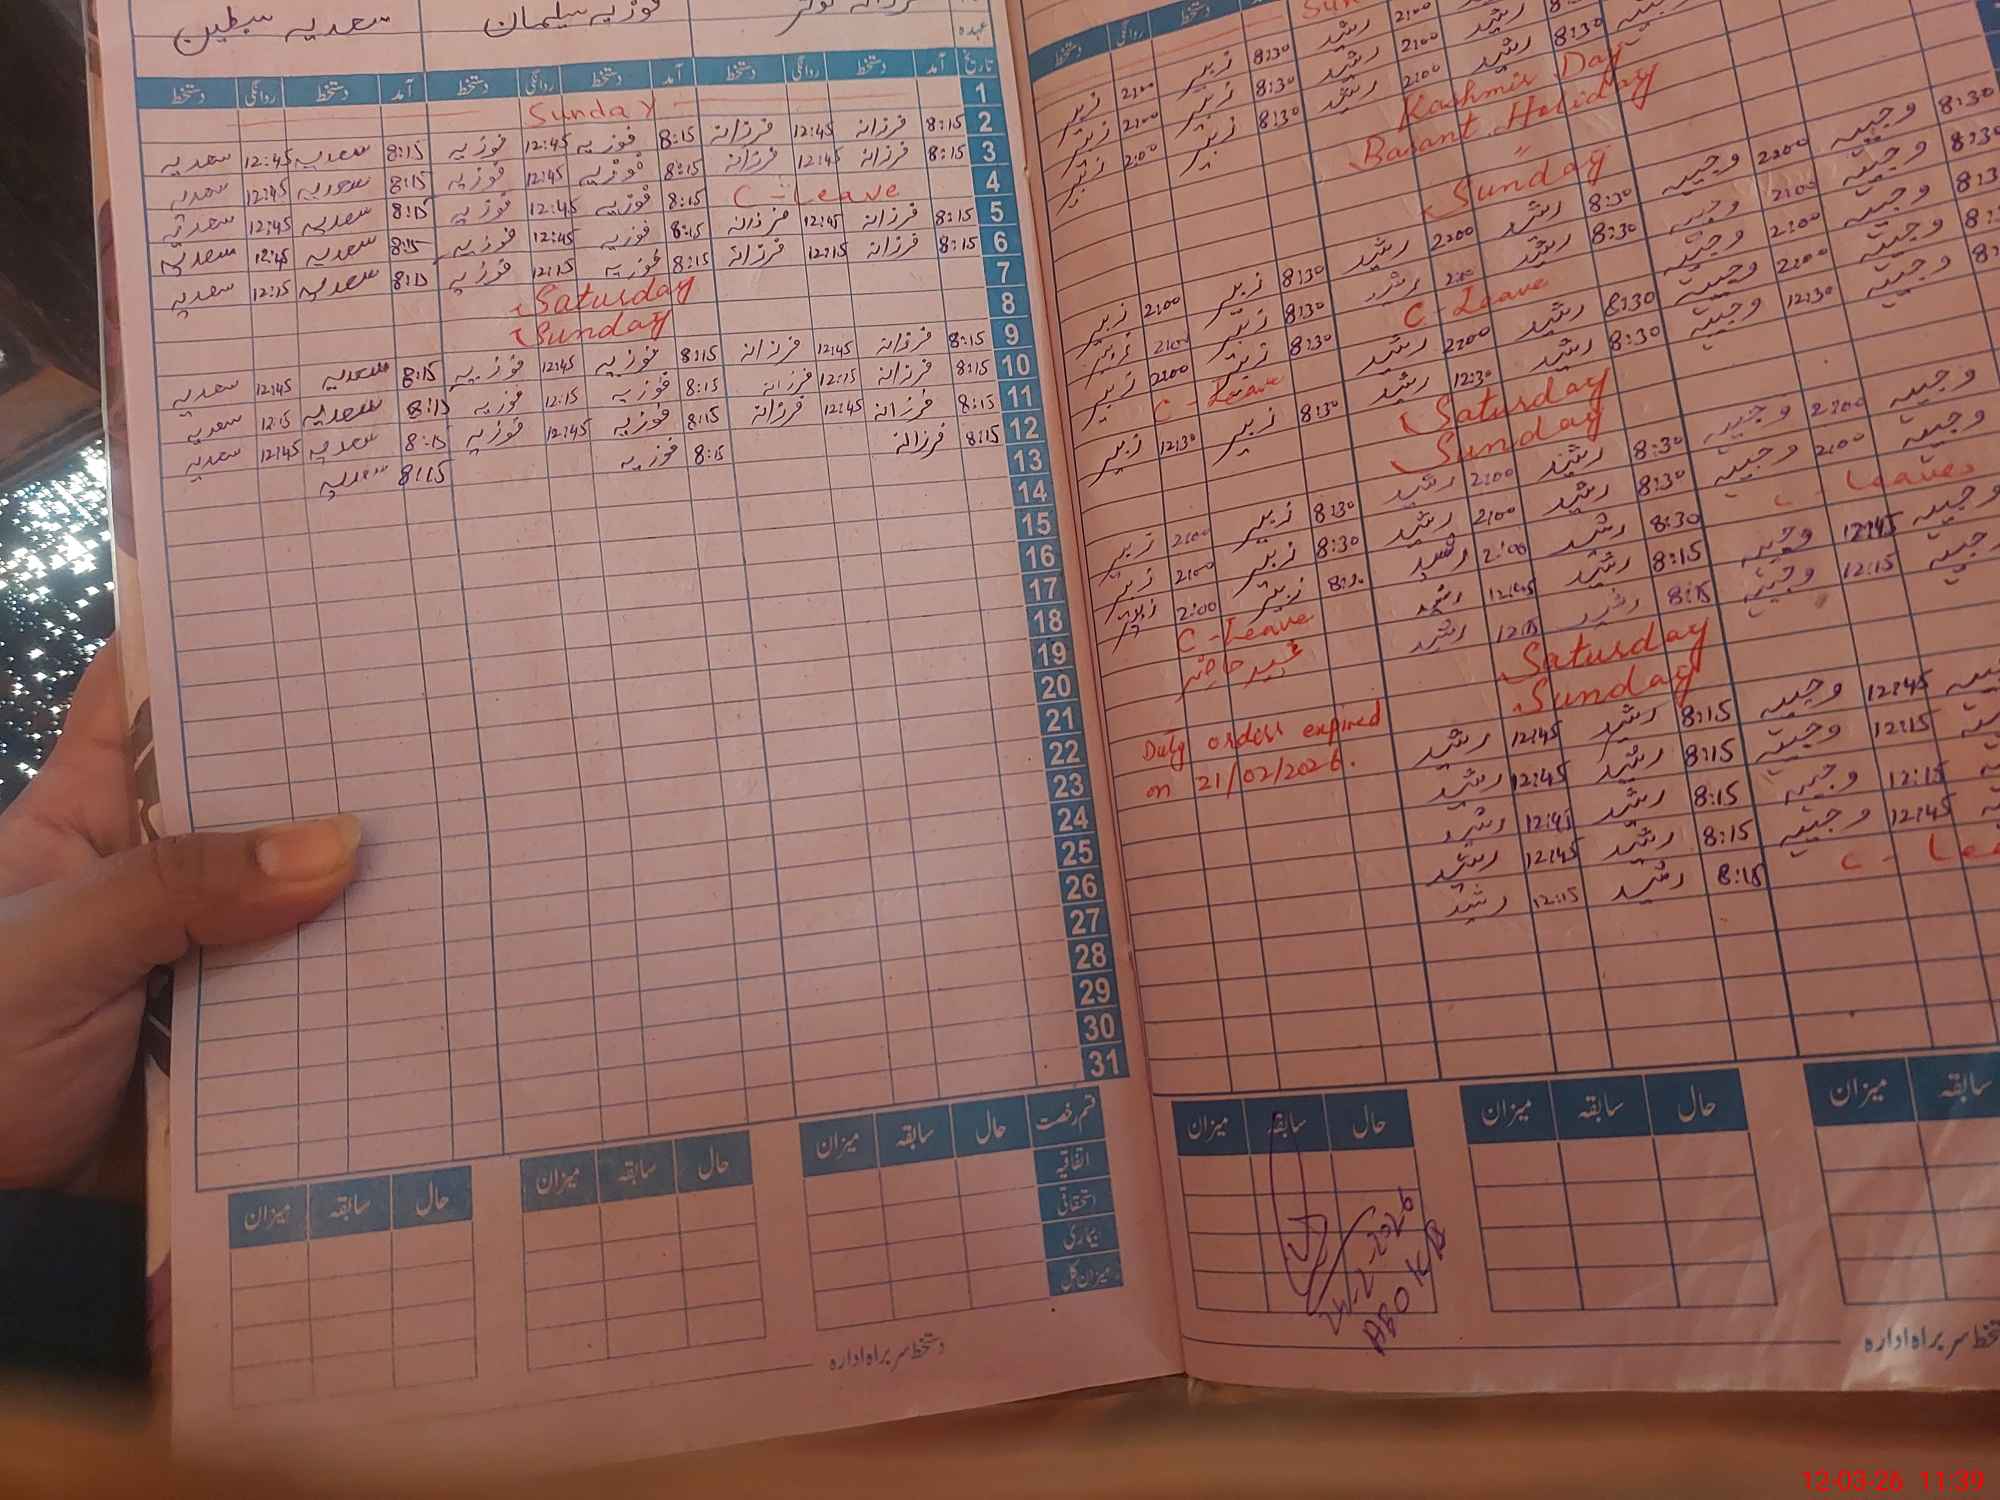 سعدیہ سبطین فوزیہ سلیمان
عہدہ
تاریخ آمد دستخط روانگی دستخط آمد دستخط روانگی دستخط آمد دستخط روانگی دستخط
1 Sunday
2 8:15 فرزانہ 12:45 فرزانہ 8:15 فوزیہ 12:45 فوزیہ 8:15 سعدیہ 12:45 سعدیہ
3 8:15 فرزانہ 12:45 فرزانہ 8:15 فوزیہ 12:45 فوزیہ 8:15 سعدیہ 12:45 سعدیہ
4 C-Leave 8:15 فوزیہ 12:45 فوزیہ 8:15 سعدیہ 12:45 سعدیہ
5 8:15 فرزانہ 12:45 فرزانہ 8:15 فوزیہ 12:45 فوزیہ 8:15 سعدیہ 12:45 سعدیہ
6 8:15 فرزانہ 12:15 فرزانہ 8:15 فوزیہ 12:15 فوزیہ 8:15 سعدیہ 12:15 سعدیہ
7 Saturday
8 Sunday
9 8:15 فرزانہ 12:45 فرزانہ 8:15 فوزیہ 12:45 فوزیہ 8:15 سعدیہ 12:45 سعدیہ
10 8:15 فرزانہ 12:15 فرزانہ 8:15 فوزیہ 12:15 فوزیہ 8:15 سعدیہ 12:15 سعدیہ
11 8:15 فرزانہ 12:45 فرزانہ 8:15 فوزیہ 12:45 فوزیہ 8:15 سعدیہ 12:45 سعدیہ
12 8:15 فرزانہ 8:15 فوزیہ 8:15 سعدیہ
13
14
15
16
17
18
19
20
21
22
23
24
25
26
27
28
29
30
31
قسم رخصت حال سابقہ میزان حال سابقہ میزان حال سابقہ میزان
اتفاقیہ
استحقاقی
بیماری
میزان کل
دستخط سربراہ ادارہ
دستخط روانگی دستخط
8:30 رشید 2:00 رشید 8:30 زبیر 2:00 زبیر
8:30 رشید 2:00 رشید 8:30 زبیر 2:00 زبیر
Kashmir Day
Basant Holiday
"
Sunday
8:30 وجیہہ 2:00 وجیہہ 8:30 رشید 2:00 رشید 8:30 زبیر 2:00 زبیر
8:30 وجیہہ 2:00 وجیہہ 8:30 رشید 2:00 رشید 8:30 زبیر 2:00 زبیر
وجیہہ 2:00 وجیہہ C-Leave 8:30 زبیر 2:00 زبیر
وجیہہ 2:00 وجیہہ 8:30 رشید 2:00 رشید C-Leave
وجیہہ 12:30 وجیہہ 8:30 رشید 12:30 رشید 8:30 زبیر 12:30 زبیر
Saturday
Sunday
وجیہہ 2:00 وجیہہ 8:30 رشید 2:00 رشید 8:30 زبیر 2:00 زبیر
وجیہہ 2:00 وجیہہ 8:30 رشید 2:00 رشید 8:30 زبیر 2:00 زبیر
C-Leave 8:30 رشید 2:00 رشید 8:30 زبیر 2:00 زبیر
وجیہہ 12:45 وجیہہ 8:15 رشید 12:45 رشید C-Leave
وجیہہ 12:15 وجیہہ 8:15 رشید 12:15 رشید غیر حاضر
Saturday
Sunday
12:45 وجیہہ 8:15 رشید 12:45 رشید Duty orders expired
12:15 وجیہہ 8:15 رشید 12:45 رشید on 21/02/2026.
12:15 وجیہہ 8:15 رشید 12:45 رشید
12:45 وجیہہ 8:15 رشید 12:45 رشید
C - Lea 8:15 رشید 12:15 رشید
سابقہ میزان حال سابقہ میزان حال سابقہ میزان
24-2-2026
دستخط سربراہ ادارہ
12-03-26 11:39